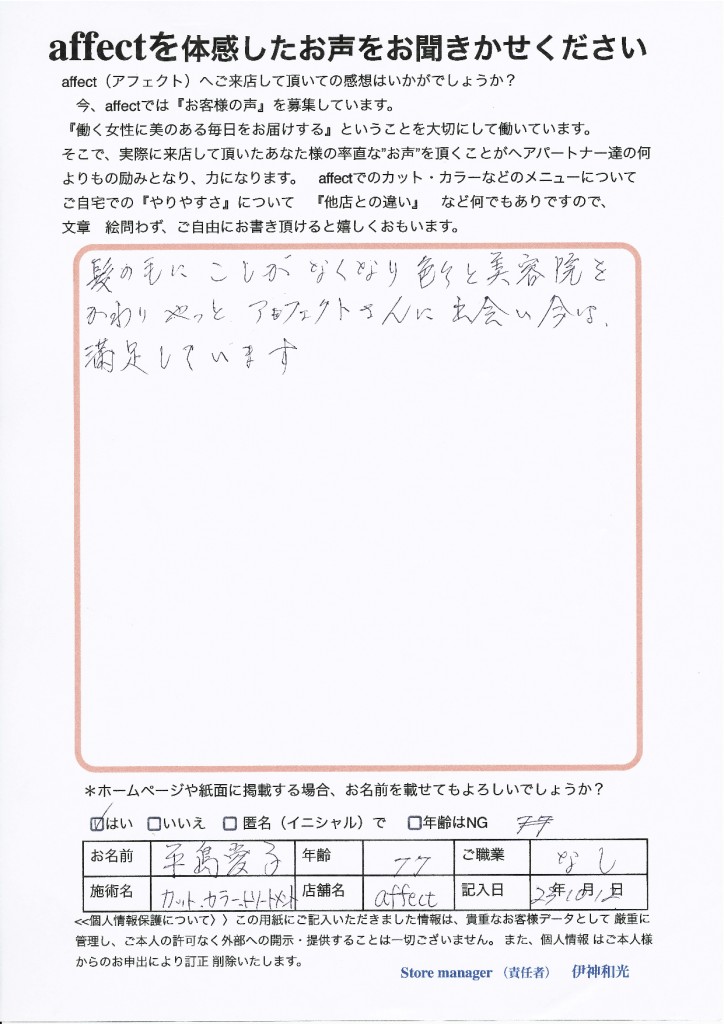 affectを体感したお声をお聞きかせください
affect（アフェクト）へご来店して頂いての感想はいかがでしょうか？
今、affectでは『お客様の声』を募集しています。
『働く女性に美のある毎日をお届けする』ということを大切にして働いています。
そこで、実際に来店して頂いたあなた様の率直な”お声”を頂くことがヘアパートナー達の何
よりもの励みとなり、力になります。　affectでのカット・カラーなどのメニューについて
ご自宅での『やりやすさ』について　『他店との違い』　など何でもありですので、
文章　絵問わず、ご自由にお書き頂けると嬉しくおもいます。
髪の毛に こしが なくなり 色々と美容院を
かわり やっと アフェクトさんに出会い今は、
満足しています
＊ホームページや紙面に掲載する場合、お名前を載せてもよろしいでしょうか？
はい いいえ 匿名（イニシャル）で 年齢はNG 77
お名前 平島愛子 年齢 77 ご職業 なし
施術名 カット.カラー.トリートメント 店舗名 affect 記入日 23年10月12日
<<個人情報保護について〉〉この用紙にご記入いただきました情報は、貴重なお客様データとして 厳重に
管理し、ご本人の許可なく外部への開示・提供することは一切ございません。また、個人情報 はご本人様
からのお申出により訂正 削除いたします。
Store manager （責任者）　伊神和光